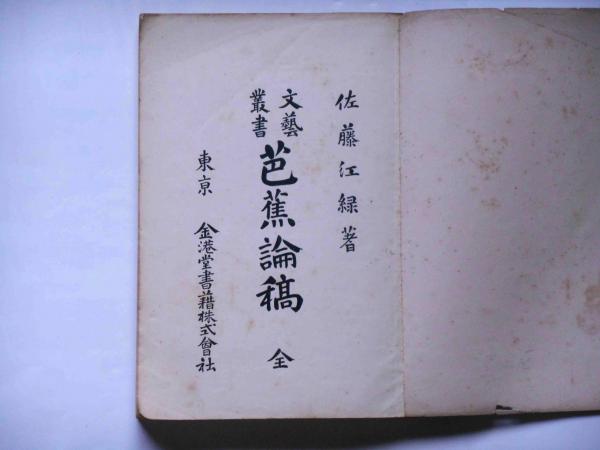 佐藤江緑著
文藝叢書
芭蕉論稿 全
東京 金港堂書籍株式會社